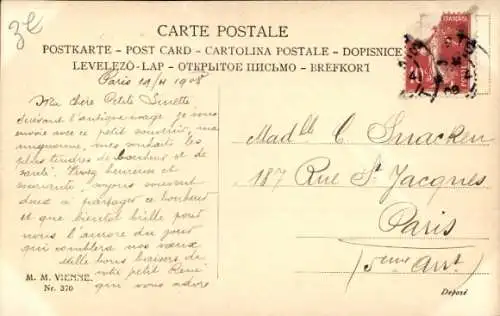 3e
CARTE POSTALE
POSTKARTE – POST CARD – CARTOLINA POSTALE – DOPISNICE
LEVELEZÖ-LAP – ОТКРЫТОЕ ПИСЬМО – BREFKORT
Paris 19/4 1908
Ma chère Petite Ninette
Suivant l'antique usage je vous
envoie avec ce petit souvenir, ma
mignonne, mes souhaits les
plus tendres de bonheur et de
santé. Soyez heureuse et
souriante, soyons souvent
deux à partager ce bonheur
et que bientôt brille pour
nous l'aurore du jour
qui comblera nos vœux
Mille bons baisers de
votre petit René
qui vous adore
M. M. VIENNE.
Nr. 370
Madlle C. Snacken
187 Rue St Jacques
Paris
(5eme Arrt)
Deposé